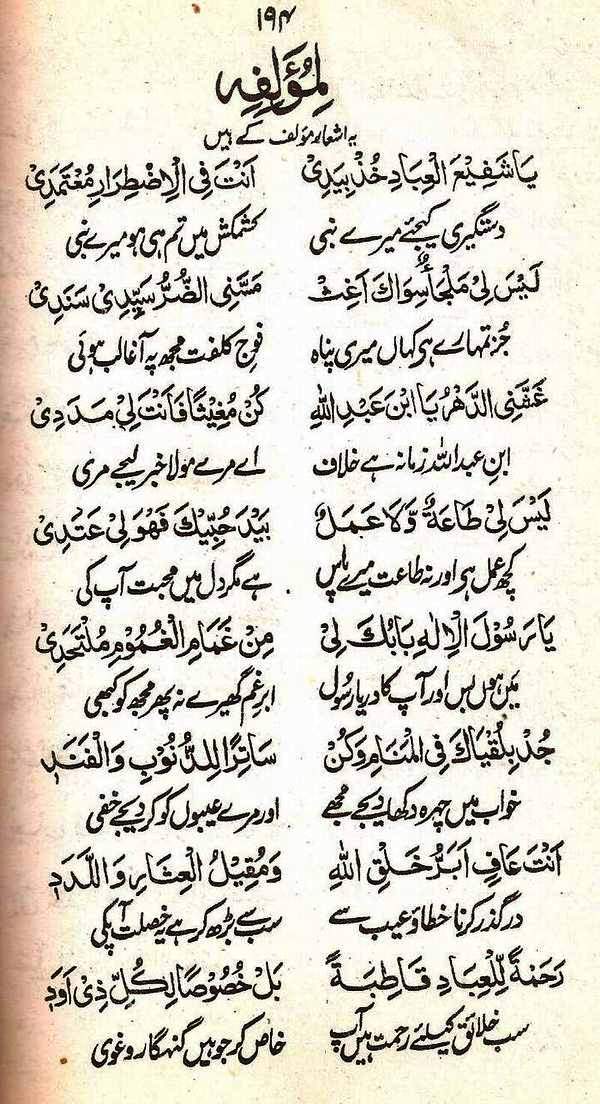 ۱۹۴
لِمُؤَلِّفِهٖ
یہ اشعار مؤلف کے ہیں
یَا شَفِیْعَ الْعِبَادِ خُذْ بِیَدِیْ اَنْتَ فِی الْاِضْطِرَارِ مُعْتَمَدِیْ
دستگیری کیجئے میرے نبی کشمکش میں تم ہی ہو میرے نبی
لَیْسَ لِیْ مَلْجَأٌ سِوَاكَ اَغِثْ مَسَّنِی الضُّرُّ سَیِّدِیْ سَنَدِیْ
جز تمہارے ہی کہاں میری پناہ فوج کلفت مجھ پہ آ غالب ہوئی
غَشَّنِی الدَّهْرُ یَا ابْنَ عَبْدِ اللهِ کُنْ مُغِیْثًا فَاَنْتَ لِیْ مَدَدِیْ
ابنِ عبد اللہ زمانہ ہے خلاف اے مرے مولا خبر لیجے مری
لَیْسَ لِیْ طَاعَةٌ وَّلَا عَمَلٌ بَیْدَ حُبِّیْكَ فَهُوَ لِیْ عَتَدِیْ
کچھ عمل ہی اور نہ طاعت میرے پاس ہے مگر دل میں محبت آپ کی
یَا رَسُوْلَ الْاِلٰهِ بَابُكَ لِیْ مِنْ غَمَامِ الْغُمُوْمِ مُلْتَحَدِیْ
میں ہوں بس اور آپ کا در یا رسول ابرِ غم گھیرے نہ پھر مجھ کو کبھی
جُدْ بِلُقْیَاكَ فِی الْمَنَامِ وَکُنْ سَاتِرًا لِلذُّنُوْبِ وَالْفَنَدِ
خواب میں چہرہ دکھا دیجے مجھے اور مرے عیبوں کو کر دیجے خفی
اَنْتَ عَافٍ اَبَرُّ خَلْقِ اللهِ وَمُقِیْلُ الْعِثَارِ وَاللَّدَدِ
درگذر کرنا خطا و عیب سے سب سے بڑھ کر ہے یہ خصلت آپکی
رَحْمَةً لِّلْعِبَادِ قَاطِبَةً بَلْ خُصُوْصًا لِکُلِّ ذِیْ اَوَدِ
سب خلائق کیلئے رحمت ہیں آپ خاص کر جو ہیں گنہگار و غوی